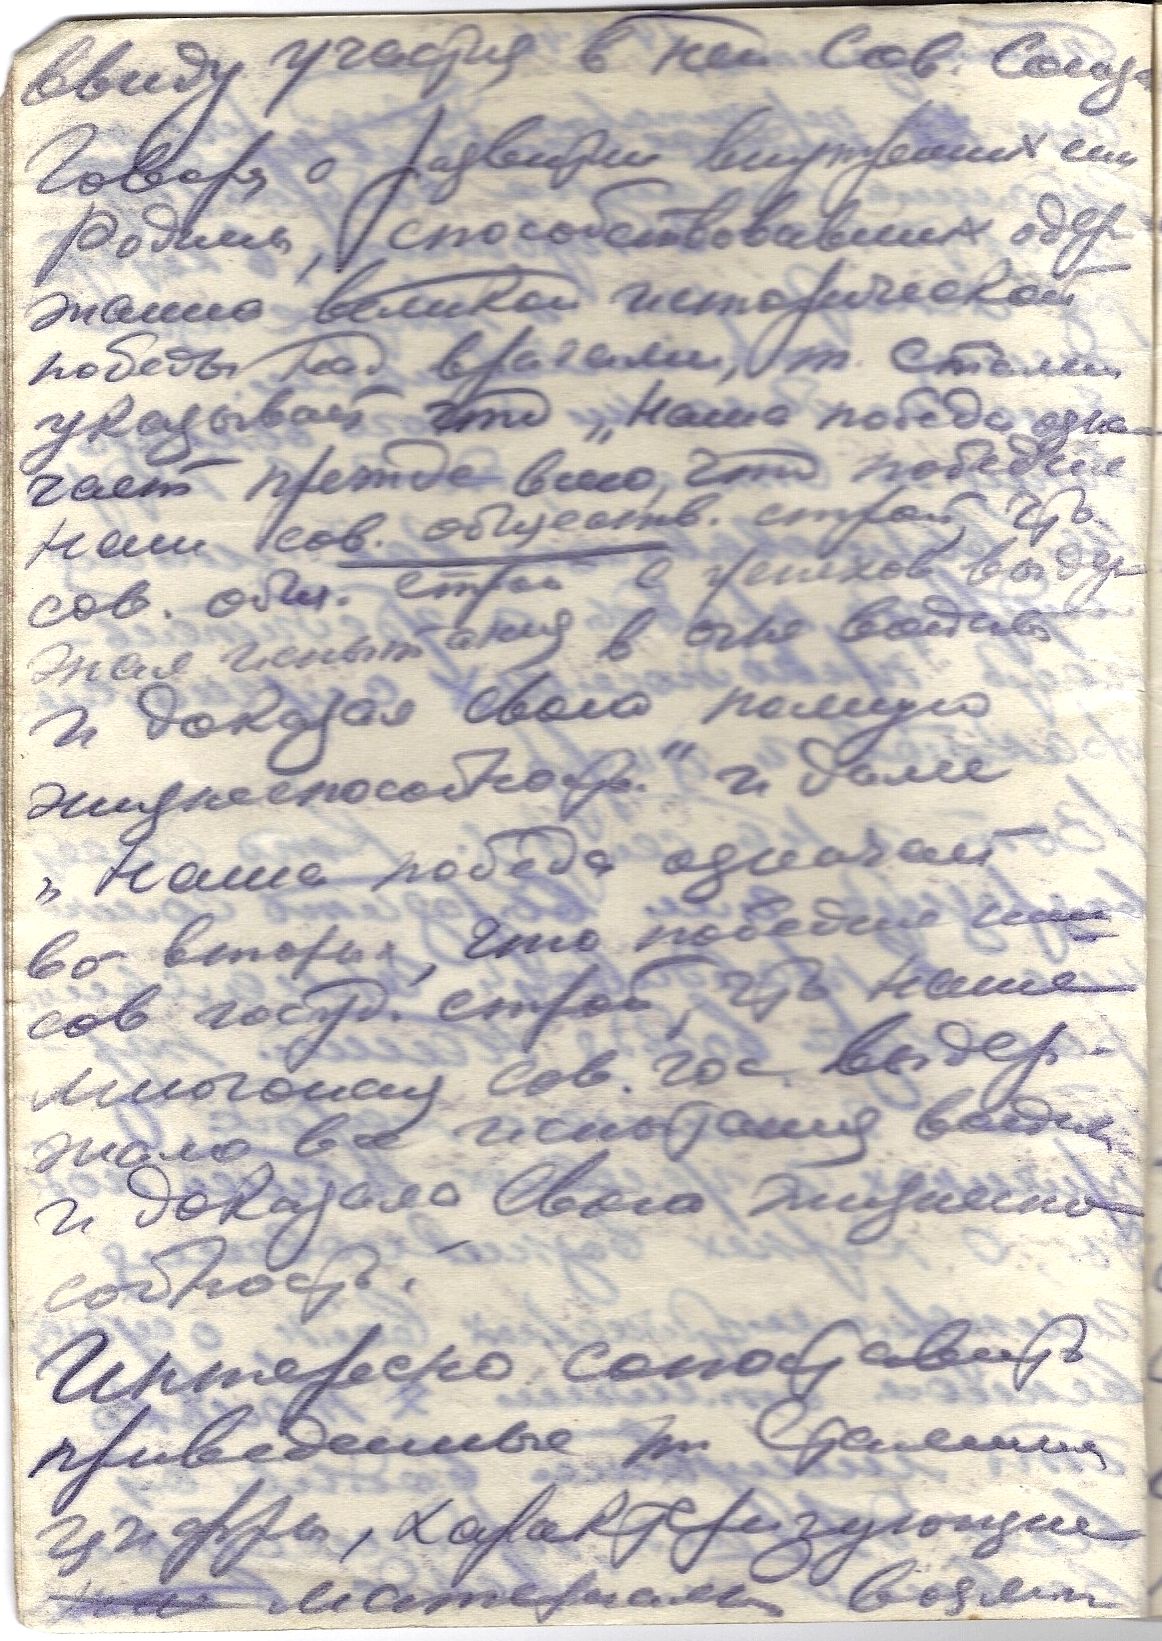 ввиду участия в ней Сов. Союза
Говоря о развитии внутренних сил
Родины, способствовавших одер-
жанию великой исторической
победы над врагами, т. Сталин
указывает что „наша победа озна-
чает прежде всего, что победил
наш сов. обществ. строй, что
сов. общ. строй с успехом выдер
жал испытания в огне войны
и доказал свою полную
жизнеспособность." и далее
„Наша победа означает
во вторых, что победил наш
сов госуд. строй, что наше
многонац сов. гос. выдер-
жало все испытания войны
и доказало свою жизнеспо
собность.
Интересно сопоставить
приведенные т. Сталиным
цифры, характеризующие
материальн возмож